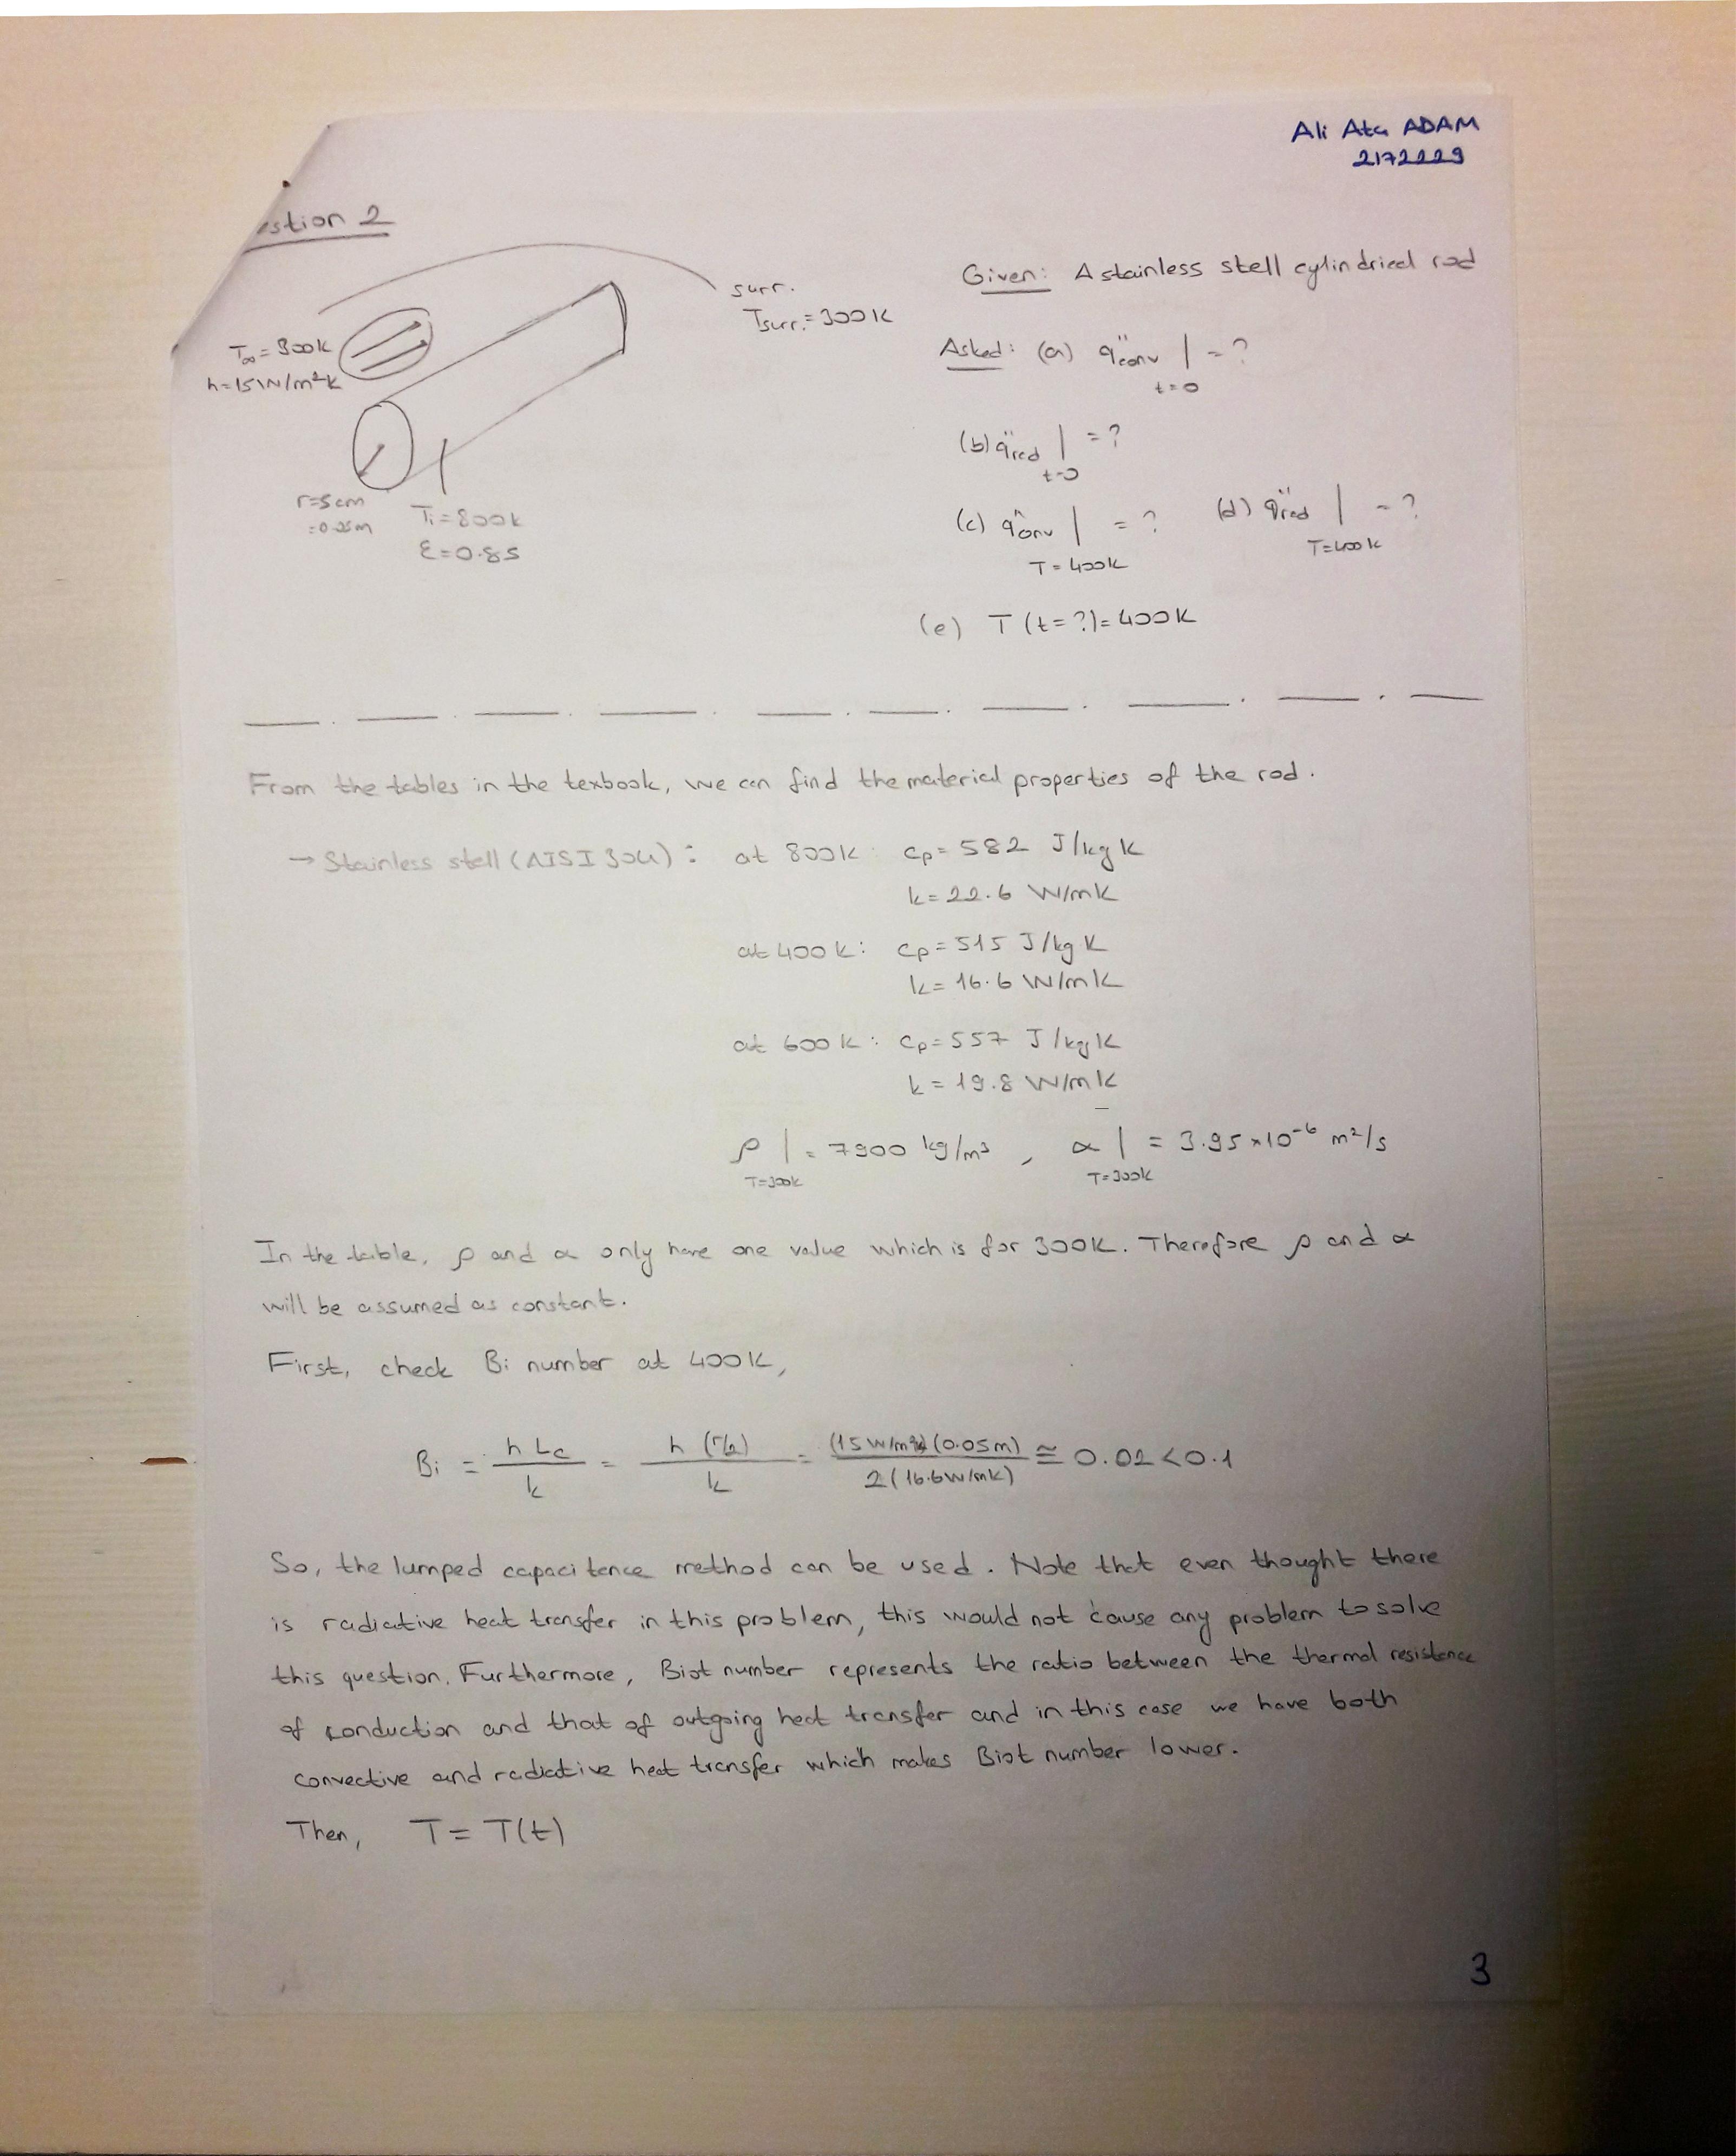 Ali Ata ADAM
2172229
estion 2
surr.
Tsurr. = 300K
T∞ = 300K
h=15W/m²K
r=5cm
=0.05m
Ti = 800K
ε=0.85
Given: A stainless stell cylindrical rod
Asked: (a) q̇''conv | t=0 = ?
(b) q̇''rad | t=0 = ?
(c) q̇''conv | T=400K = ? (d) q̇''rad | T=400K = ?
(e) T(t=?)=400K
From the tables in the texbook, we can find the material properties of the rod.
→ Stainless stell (AISI 304): at 800K: cp = 582 J/kg K
k = 22.6 W/mK
at 400K: cp = 515 J/kg K
k = 16.6 W/mK
at 600K: cp = 557 J/kg K
k = 19.8 W/mK
ρ | T=300K = 7900 kg/m³, α | T=300K = 3.95×10⁻⁶ m²/s
In the table, ρ and α only have one value which is for 300K. Therefore ρ and α
will be assumed as constant.
First, check Bi number at 400K,
Bi = h Lc / k = h (r/2) / k = (15 W/m²K)(0.05m) / 2(16.6W/mK) ≅ 0.02 < 0.1
So, the lumped capacitence method can be used. Note that even thought there
is radiative heat transfer in this problem, this would not cause any problem to solve
this question. Furthermore, Biot number represents the ratio between the thermal resistence
of conduction and that of outgoing heat transfer and in this case we have both
convective and radiative heat transfer which makes Biot number lower.
Then, T = T(t)
3